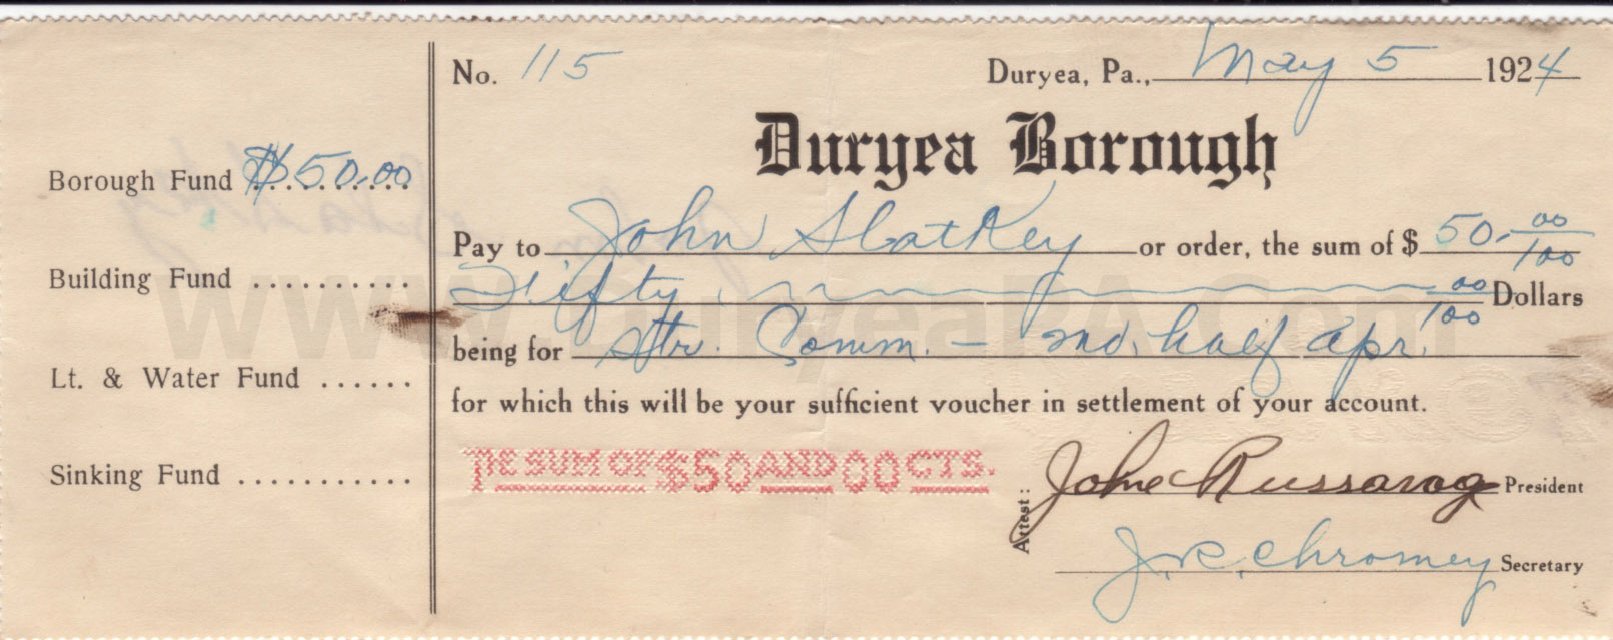 No. 115 Duryea, Pa., May 5 1924
Duryea Borough
Borough Fund $50.00
Pay to John Slatkey or order, the sum of $ 50.00/100
Building Fund ..........
Fifty 00/100 Dollars
www.DuryeaPA.com
being for Str. Comm. - 2nd. half Apr.
Lt. & Water Fund ......
for which this will be your sufficient voucher in settlement of your account.
THE SUM OF $50 AND 00 CTS.
Sinking Fund ..........
Attest: John Russavag President
J. R. Chromey Secretary